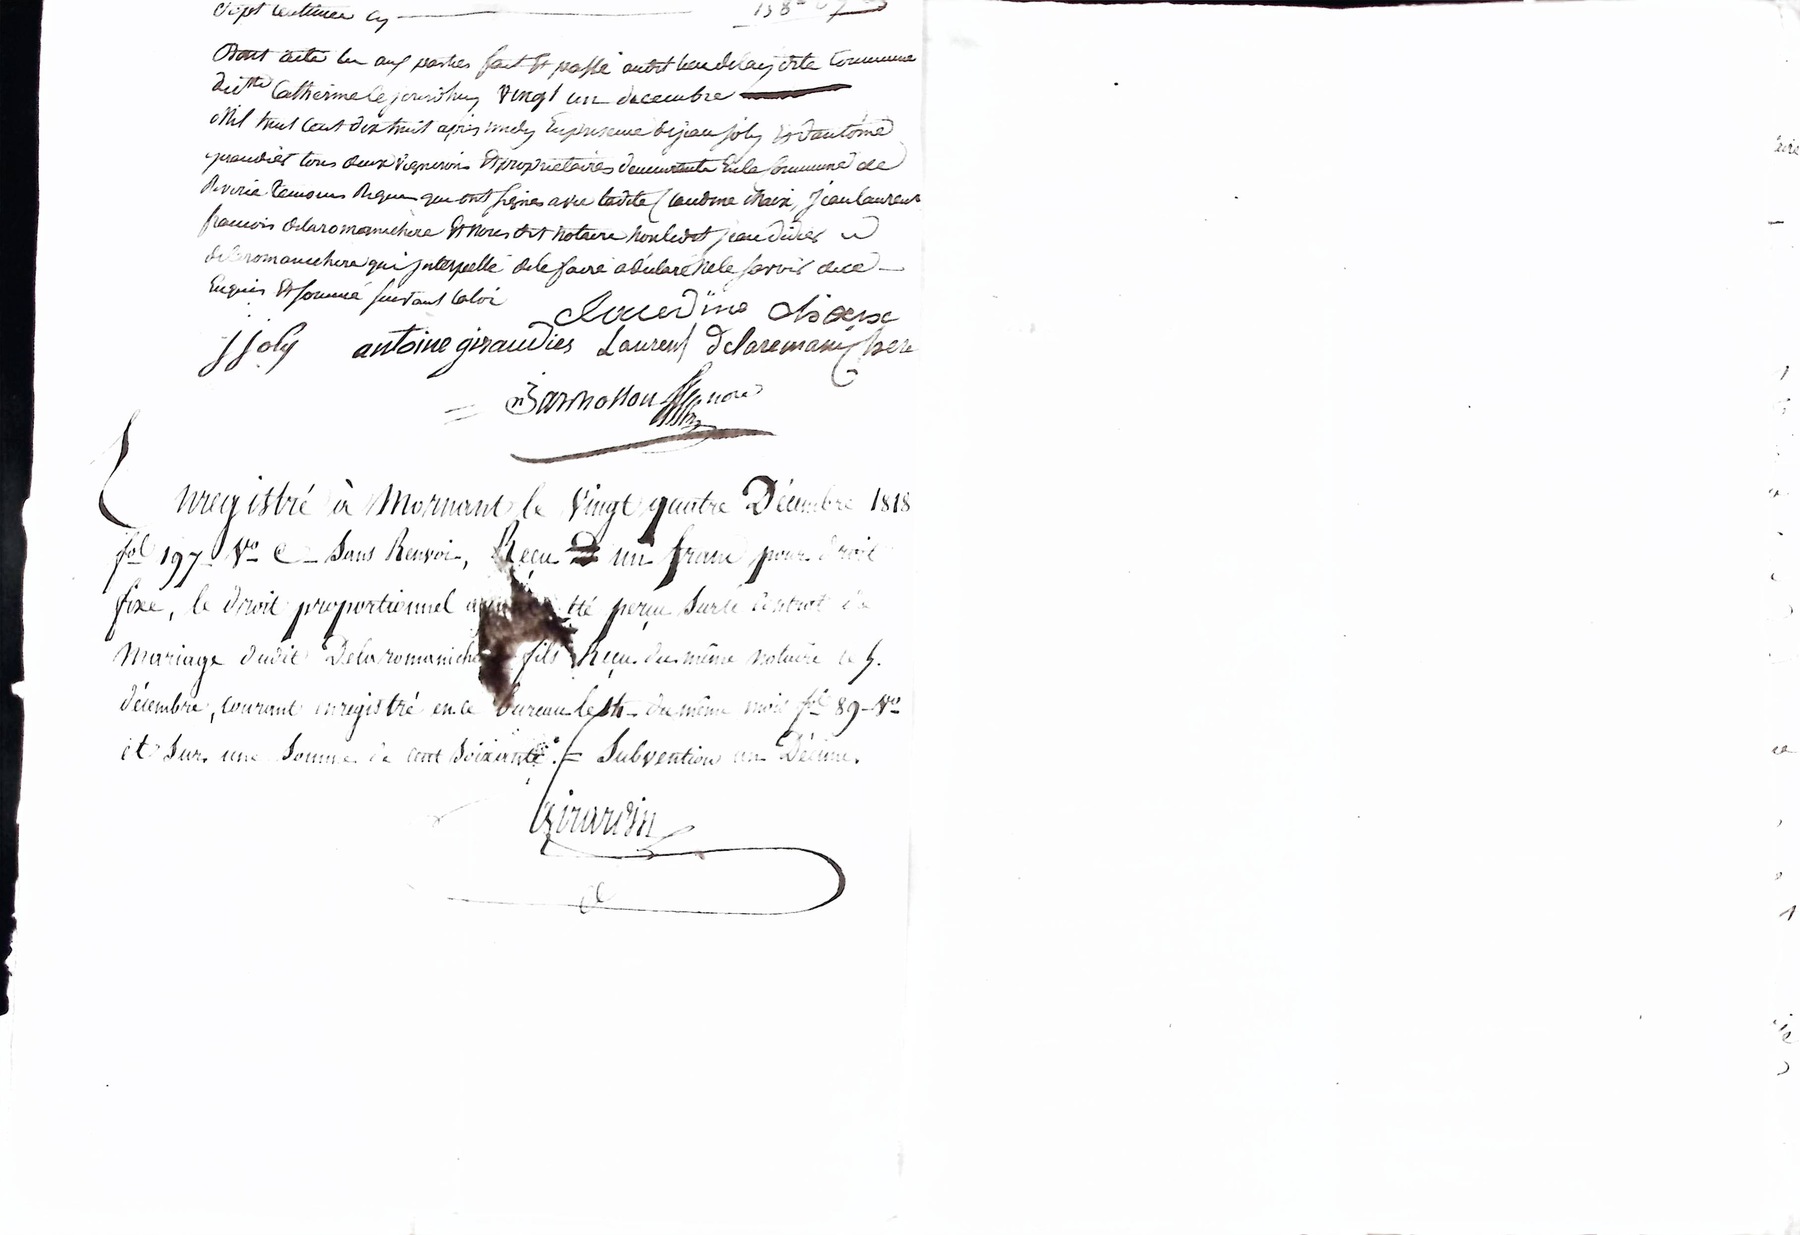 Sept centimes cy
Dont acte lu aux parties fait et passé audit lieu dite Commune
de Ste Catherine le jourdhuy vingt un decembre
Mil huit cent dix huit après midy En presence de jean joly et d'antoine
giraudier tous deux vignerons et proprietaires demeurants En la Commune de
Riverie temoins Requis qui ont signés avec ladite Claudine chaix, jean Laurent
francois delaromanichere et nous dit notaire non ledit jean didier
delaromanichere qui interpellé de le faire a déclaré ne le savoir de ce
Enquis et sommé suivant la loi
Claudine chaix
j joly antoine giraudier Laurent delaromanichere
Enregistré à Mornant le Vingt quatre Décembre 1818
fol 197 Vo C Sans Renvoi, Reçu un franc pour droit
fixe, le droit proportionnel été perçu sur le Contrat de
Mariage dudit Delaromanichere fils Reçu du même Notaire le 5.
décembre, courant enregistré en ce bureau le du même mois fol 89 Vo
et sur une somme de cent soixante. = Subvention un Décime.
Girardin